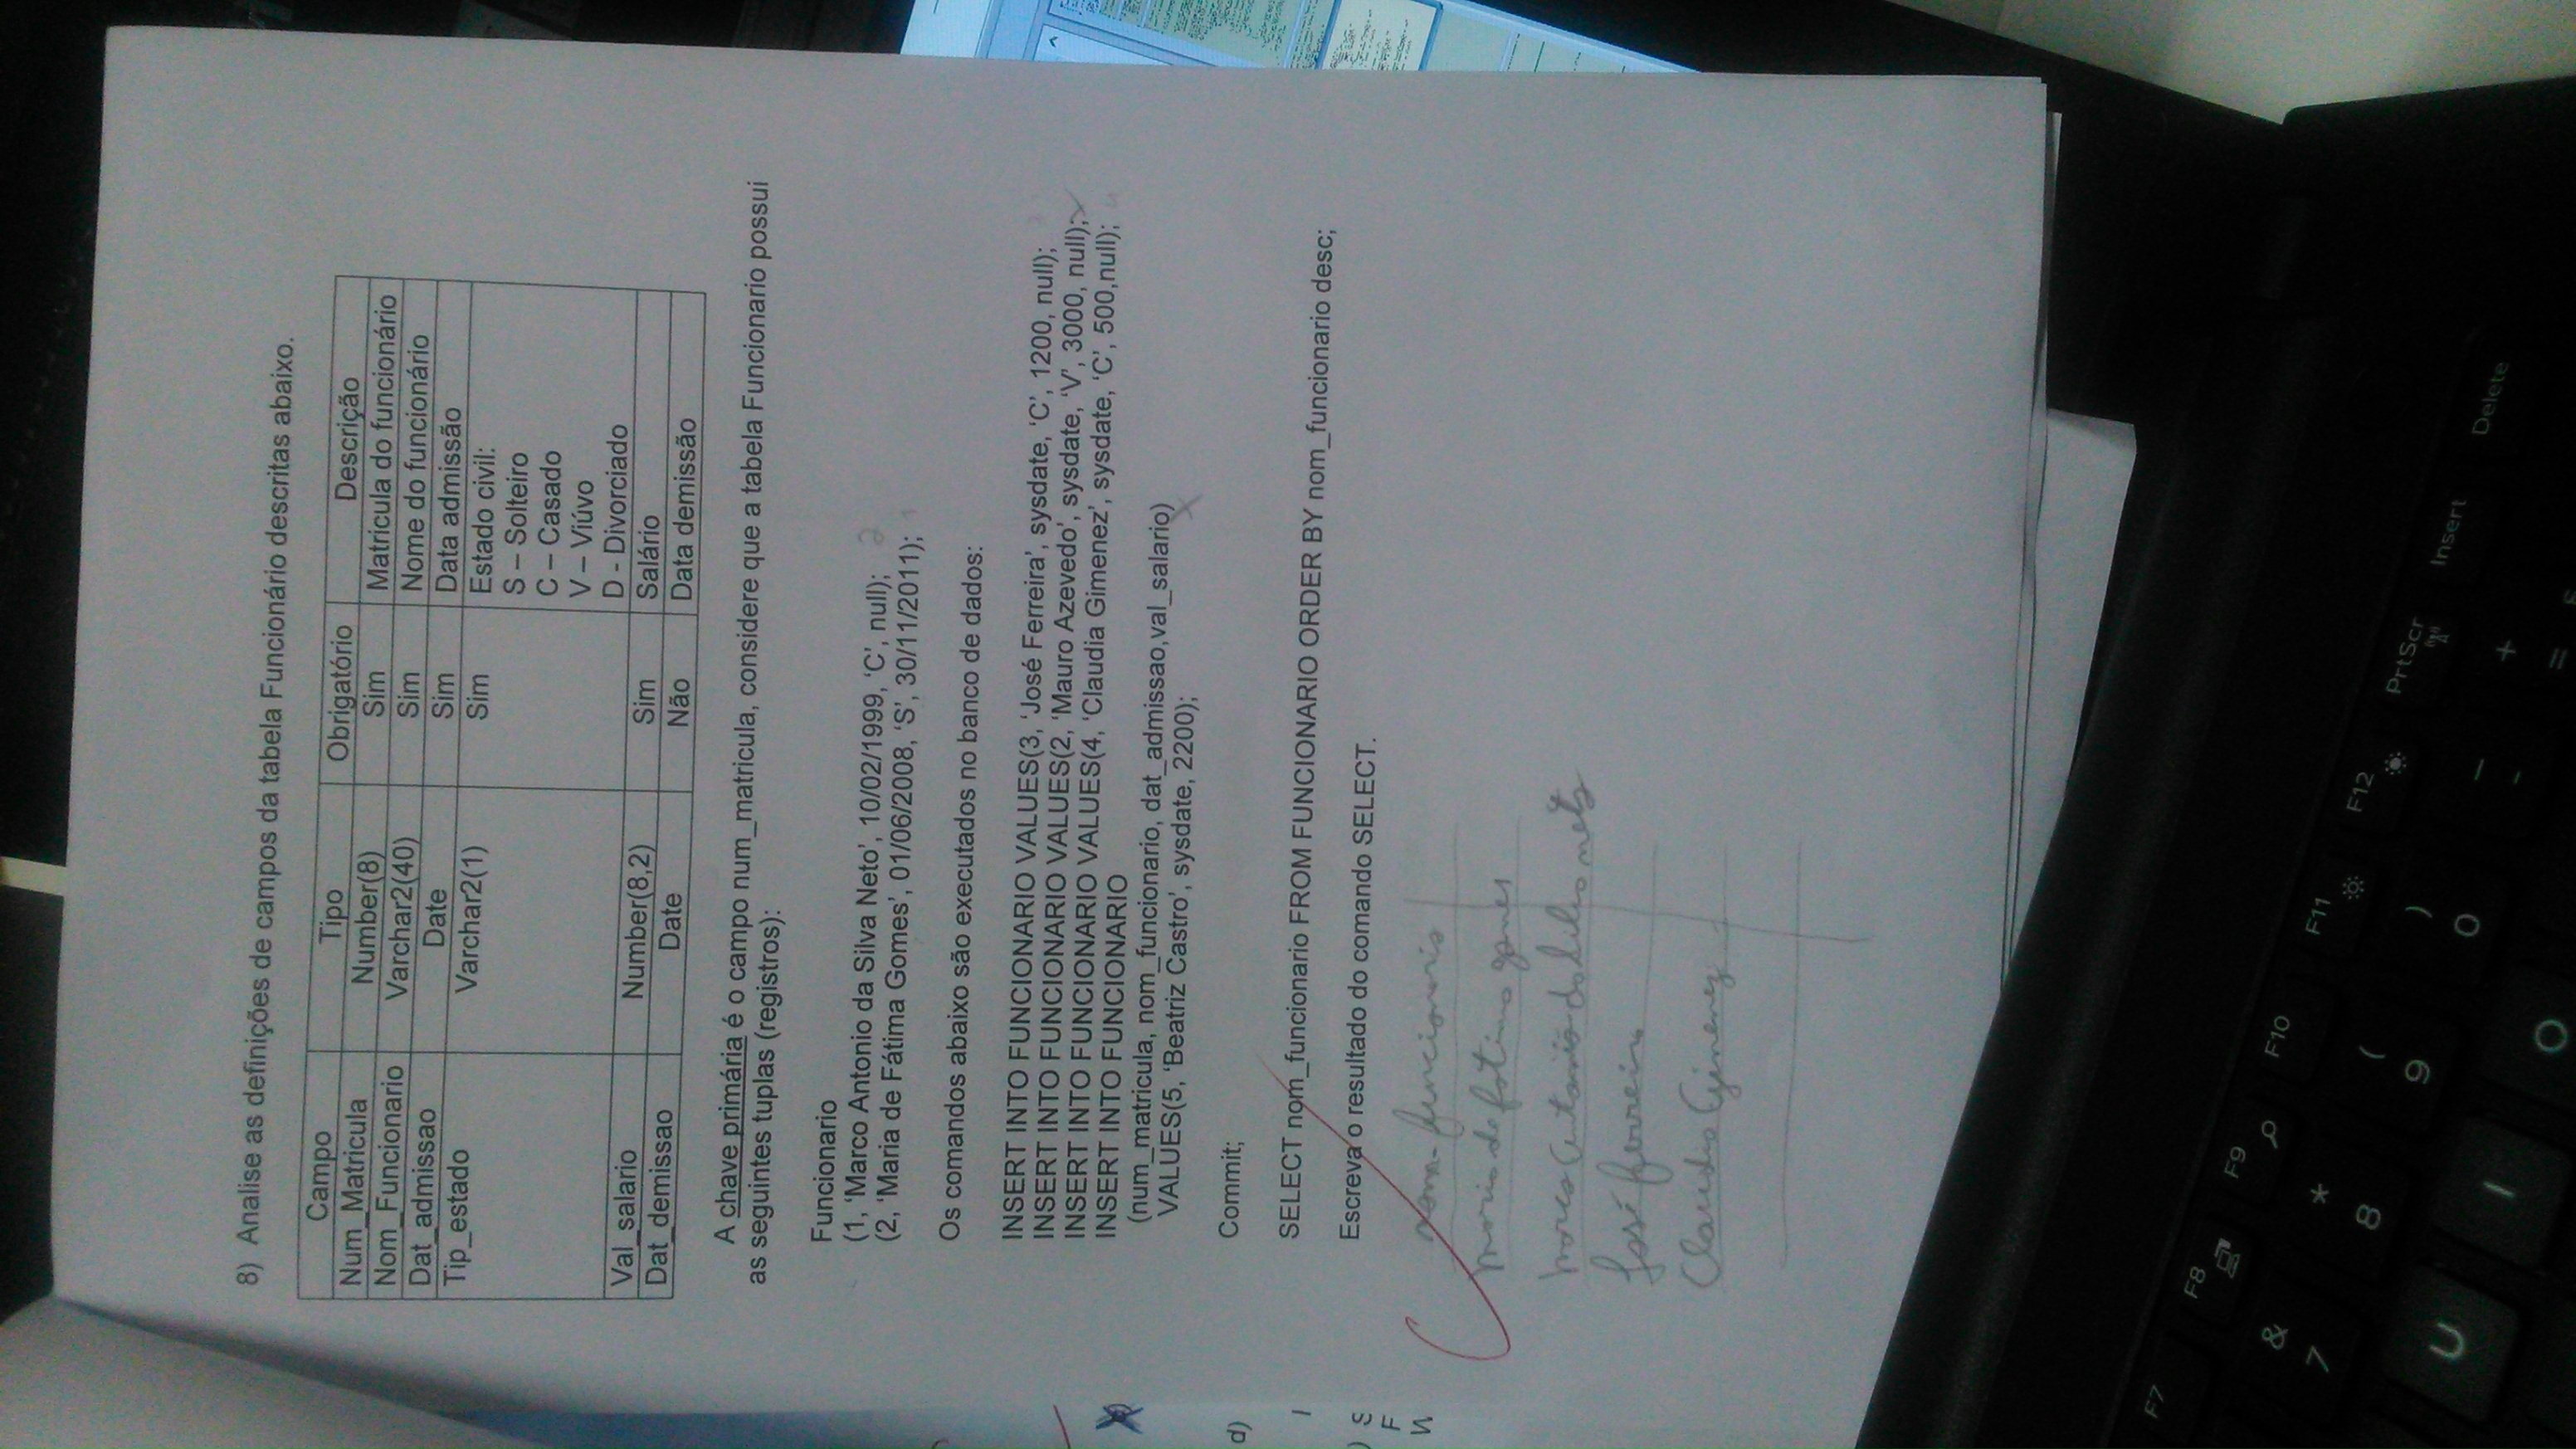 8) Analise as definições de campos da tabela Funcionário descritas abaixo.
Campo Tipo Obrigatório Descrição
Num_Matricula Number(8) Sim Matricula do funcionário
Nom_Funcionario Varchar2(40) Sim Nome do funcionário
Dat_admissao Date Sim Data admissão
Tip_estado Varchar2(1) Sim Estado civil:
S – Solteiro
C – Casado
V – Viúvo
D - Divorciado
Val_salario Number(8,2) Sim Salário
Dat_demissao Date Não Data demissão
A chave primária é o campo num_matricula, considere que a tabela Funcionario possui
as seguintes tuplas (registros):
Funcionario
(1, ‘Marco Antonio da Silva Neto’, 10/02/1999, ‘C’, null); 2
(2, ‘Maria de Fátima Gomes’, 01/06/2008, ‘S’, 30/11/2011);
Os comandos abaixo são executados no banco de dados:
INSERT INTO FUNCIONARIO VALUES(3, ‘José Ferreira’, sysdate, ‘C’, 1200, null);
INSERT INTO FUNCIONARIO VALUES(2, ‘Mauro Azevedo’, sysdate, ‘V’, 3000, null);
INSERT INTO FUNCIONARIO VALUES(4, ‘Claudia Gimenez’, sysdate, ‘C’, 500,null);
INSERT INTO FUNCIONARIO
(num_matricula, nom_funcionario, dat_admissao,val_salario)
VALUES(5, ‘Beatriz Castro’, sysdate, 2200);
Commit;
SELECT nom_funcionario FROM FUNCIONARIO ORDER BY nom_funcionario desc;
Escreva o resultado do comando SELECT.
nom_funcionario
Maria de fatima gomes
Marco Antonio da Silva neto
José ferreira
Claudia Gimenez
d)
I
) S
F
N
F7 F8 F9 F10 F11 F12 PrtScr Insert Delete
& 7 * 8 ( 9 ) 0 _ - + =
U I O